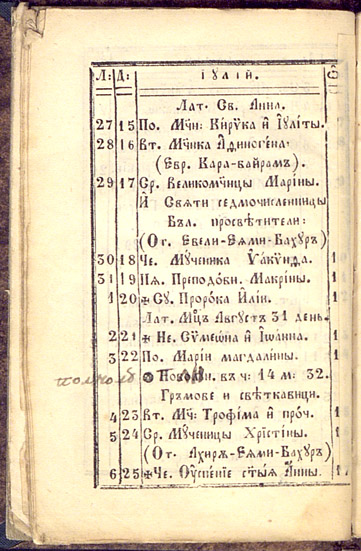 Л: Д: ІУЛІЙ. Ѿ
Лат. Св. Анна.
27 15 По. Мчн: Кирѵка и Іѹліты.
28 16 Вт. Мчника Аѳиногена:
(Евр. Кара-байрамъ).
29 17 Ср. Великомчицы Маріны. 1
И Свѧти седмочисленницы
Бъл. просвѣтители:
(От. Евели-Еѧми-Бахуръ)
30 18 Че. Мученика Ѵакинѳа. 1
31 19 Пѧ. Преподобн. Макріны. 1
1 20 ✠ Сѹ. Пророка Иліи. 1
Лат. Мцъ Августъ 31 день.
2 21 ✠ Не. Сѵмеѡна и Іѡанна. 1
3 22 По. Маріи магдалины. 1
Новолун. въ ч: 14 м: 32.
Гръмове и свѣткавици.
4 23 Вт. Мч: Трофіма и проч. 1
5 24 Ср. Мученицы Хрістіны. 1
(От. Ахирѧ-Еѧми-Бахуръ)
6 25 ✠ Че. Оуспеніе стыѧ Анны. 1